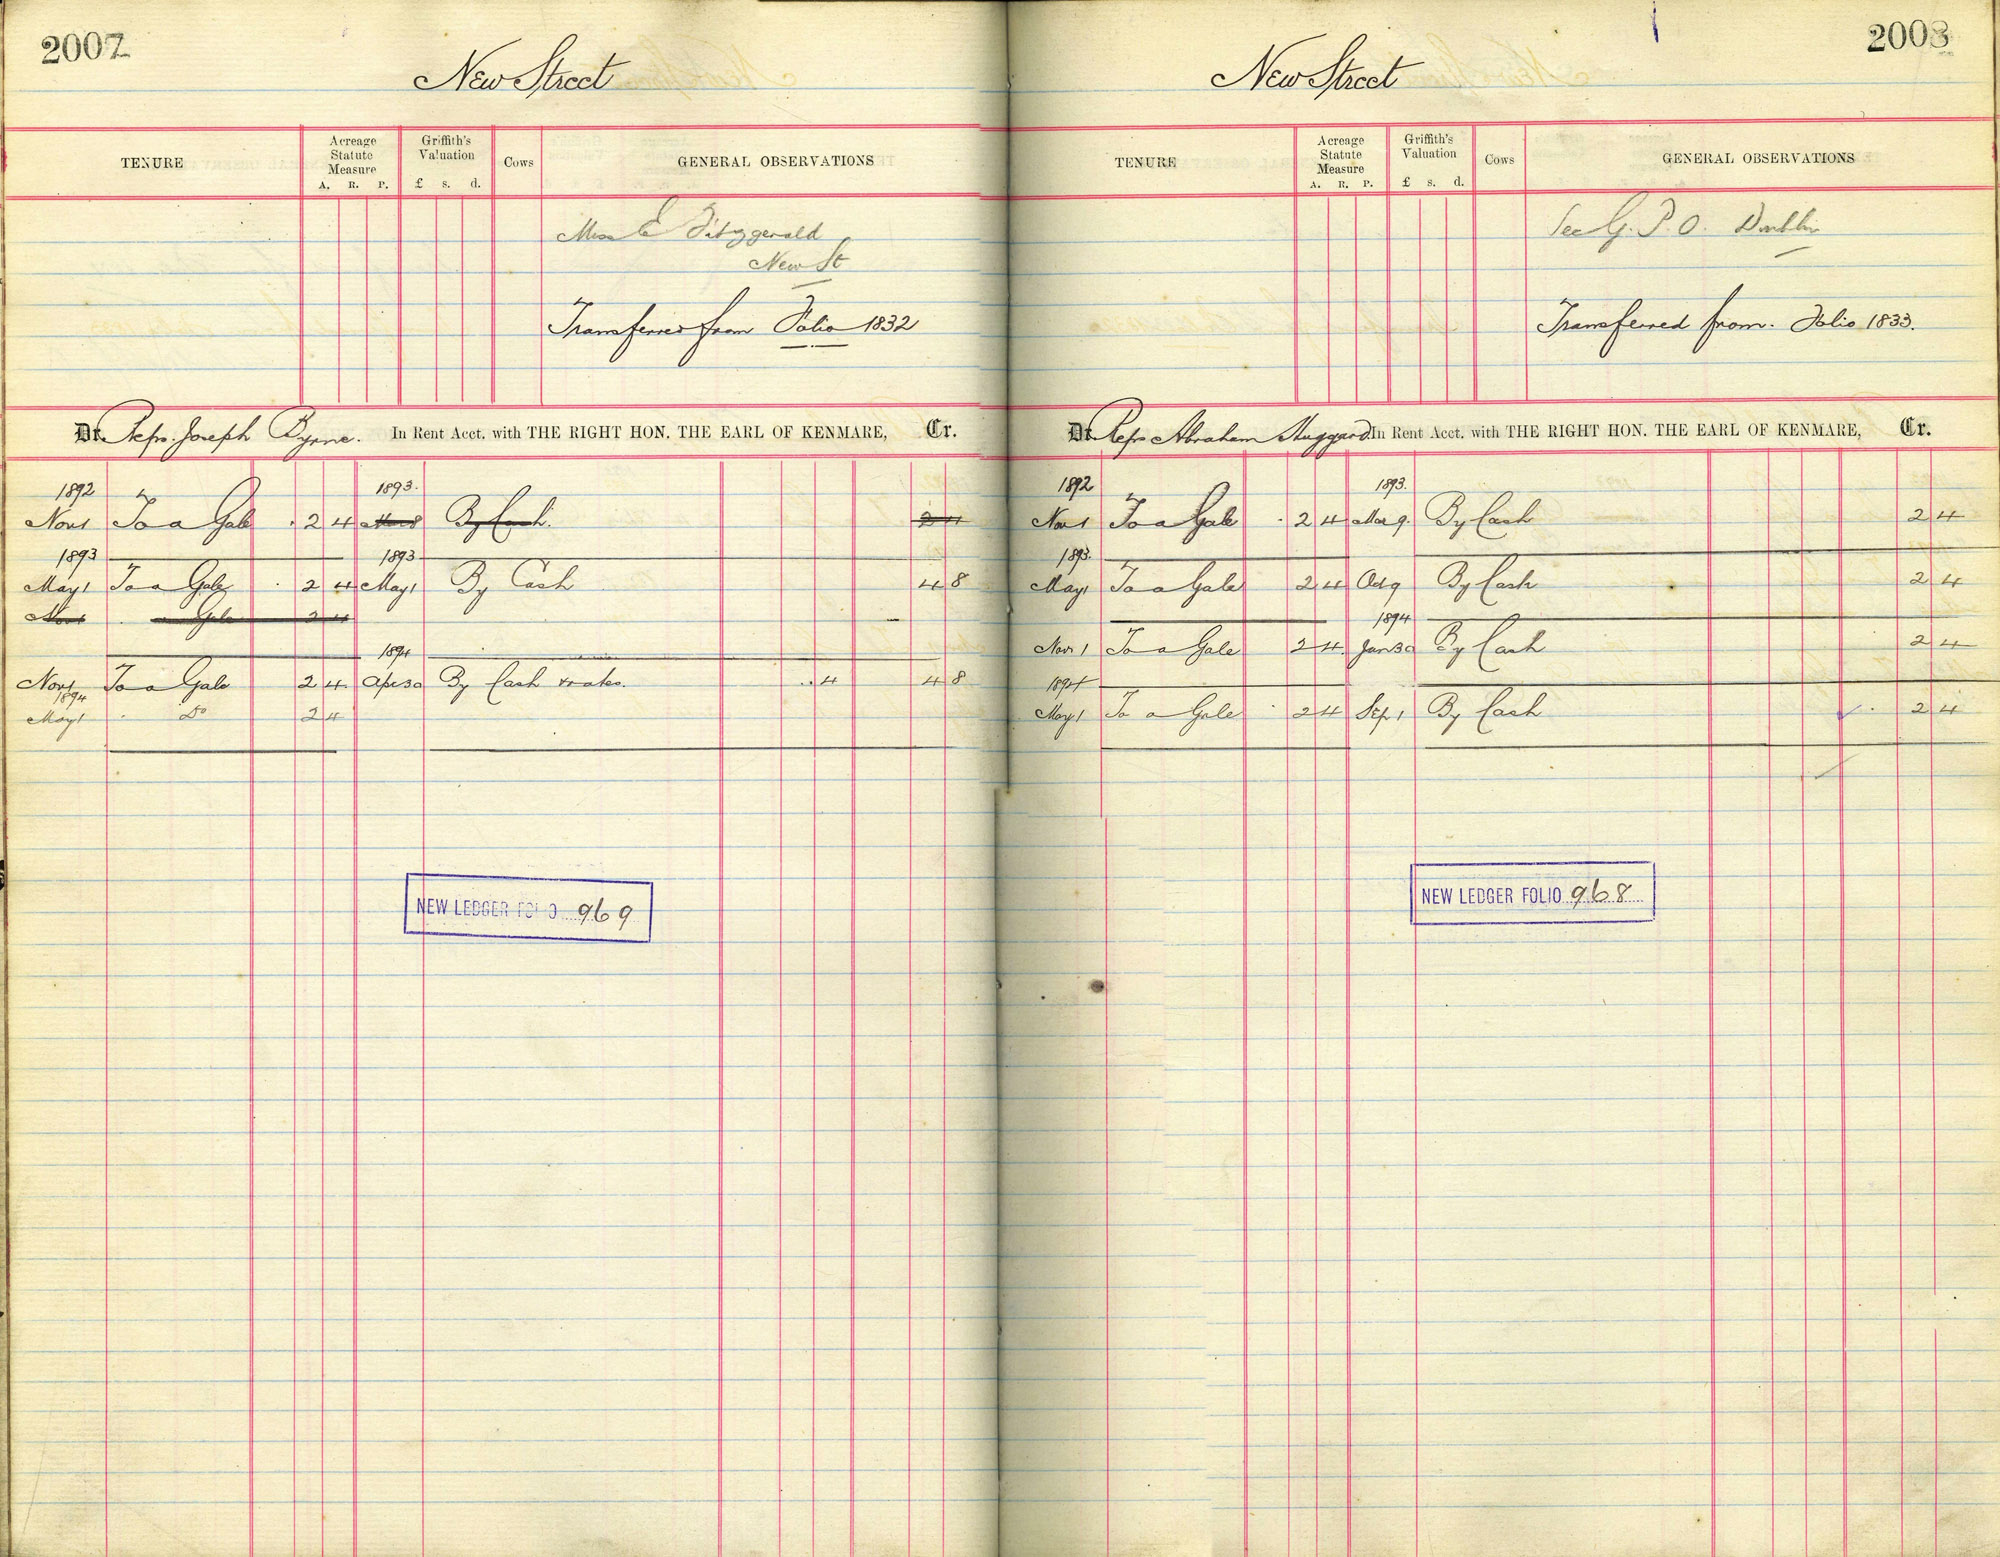 2007
New Street
TENURE
Acreage Statute Measure
A. R. P.
Griffith's Valuation
£ s. d.
Cows
GENERAL OBSERVATIONS
Miss E Fitzgerald
New St
Transferred from Folio 1832
Dr. Reps. Joseph Byrne. In Rent Acct. with THE RIGHT HON. THE EARL OF KENMARE, Cr.
1892 1893.
Nov 1 To a Gale 2 4 Mar 8 By Cash. 2 4
1893 1893
May 1 To a Gale 2 4 May 1 By Cash 4 8
Nov 1 Gale 2 4
1894
Nov 1 To a Gale 2 4 Apr 30 By Cash & rates. 4 4 8
1894
May 1 Do 2 4
NEW LEDGER FOLIO 969
2008
New Street
TENURE
Acreage Statute Measure
A. R. P.
Griffith's Valuation
£ s. d.
Cows
GENERAL OBSERVATIONS
Sec G. P. O. Dublin
Transferred from. Folio 1833.
Dr. Reps Abraham Huggard In Rent Acct. with THE RIGHT HON. THE EARL OF KENMARE, Cr.
1892 1893.
Nov 1 To a Gale 2 4 Mar 9. By Cash 2 4
1893.
May 1 To a Gale 2 4 Oct 9 By Cash 2 4
1894
Nov 1 To a Gale 2 4 Jan 30 By Cash 2 4
1894
May 1 To a Gale 2 4 Sep 1 By Cash 2 4
NEW LEDGER FOLIO 968